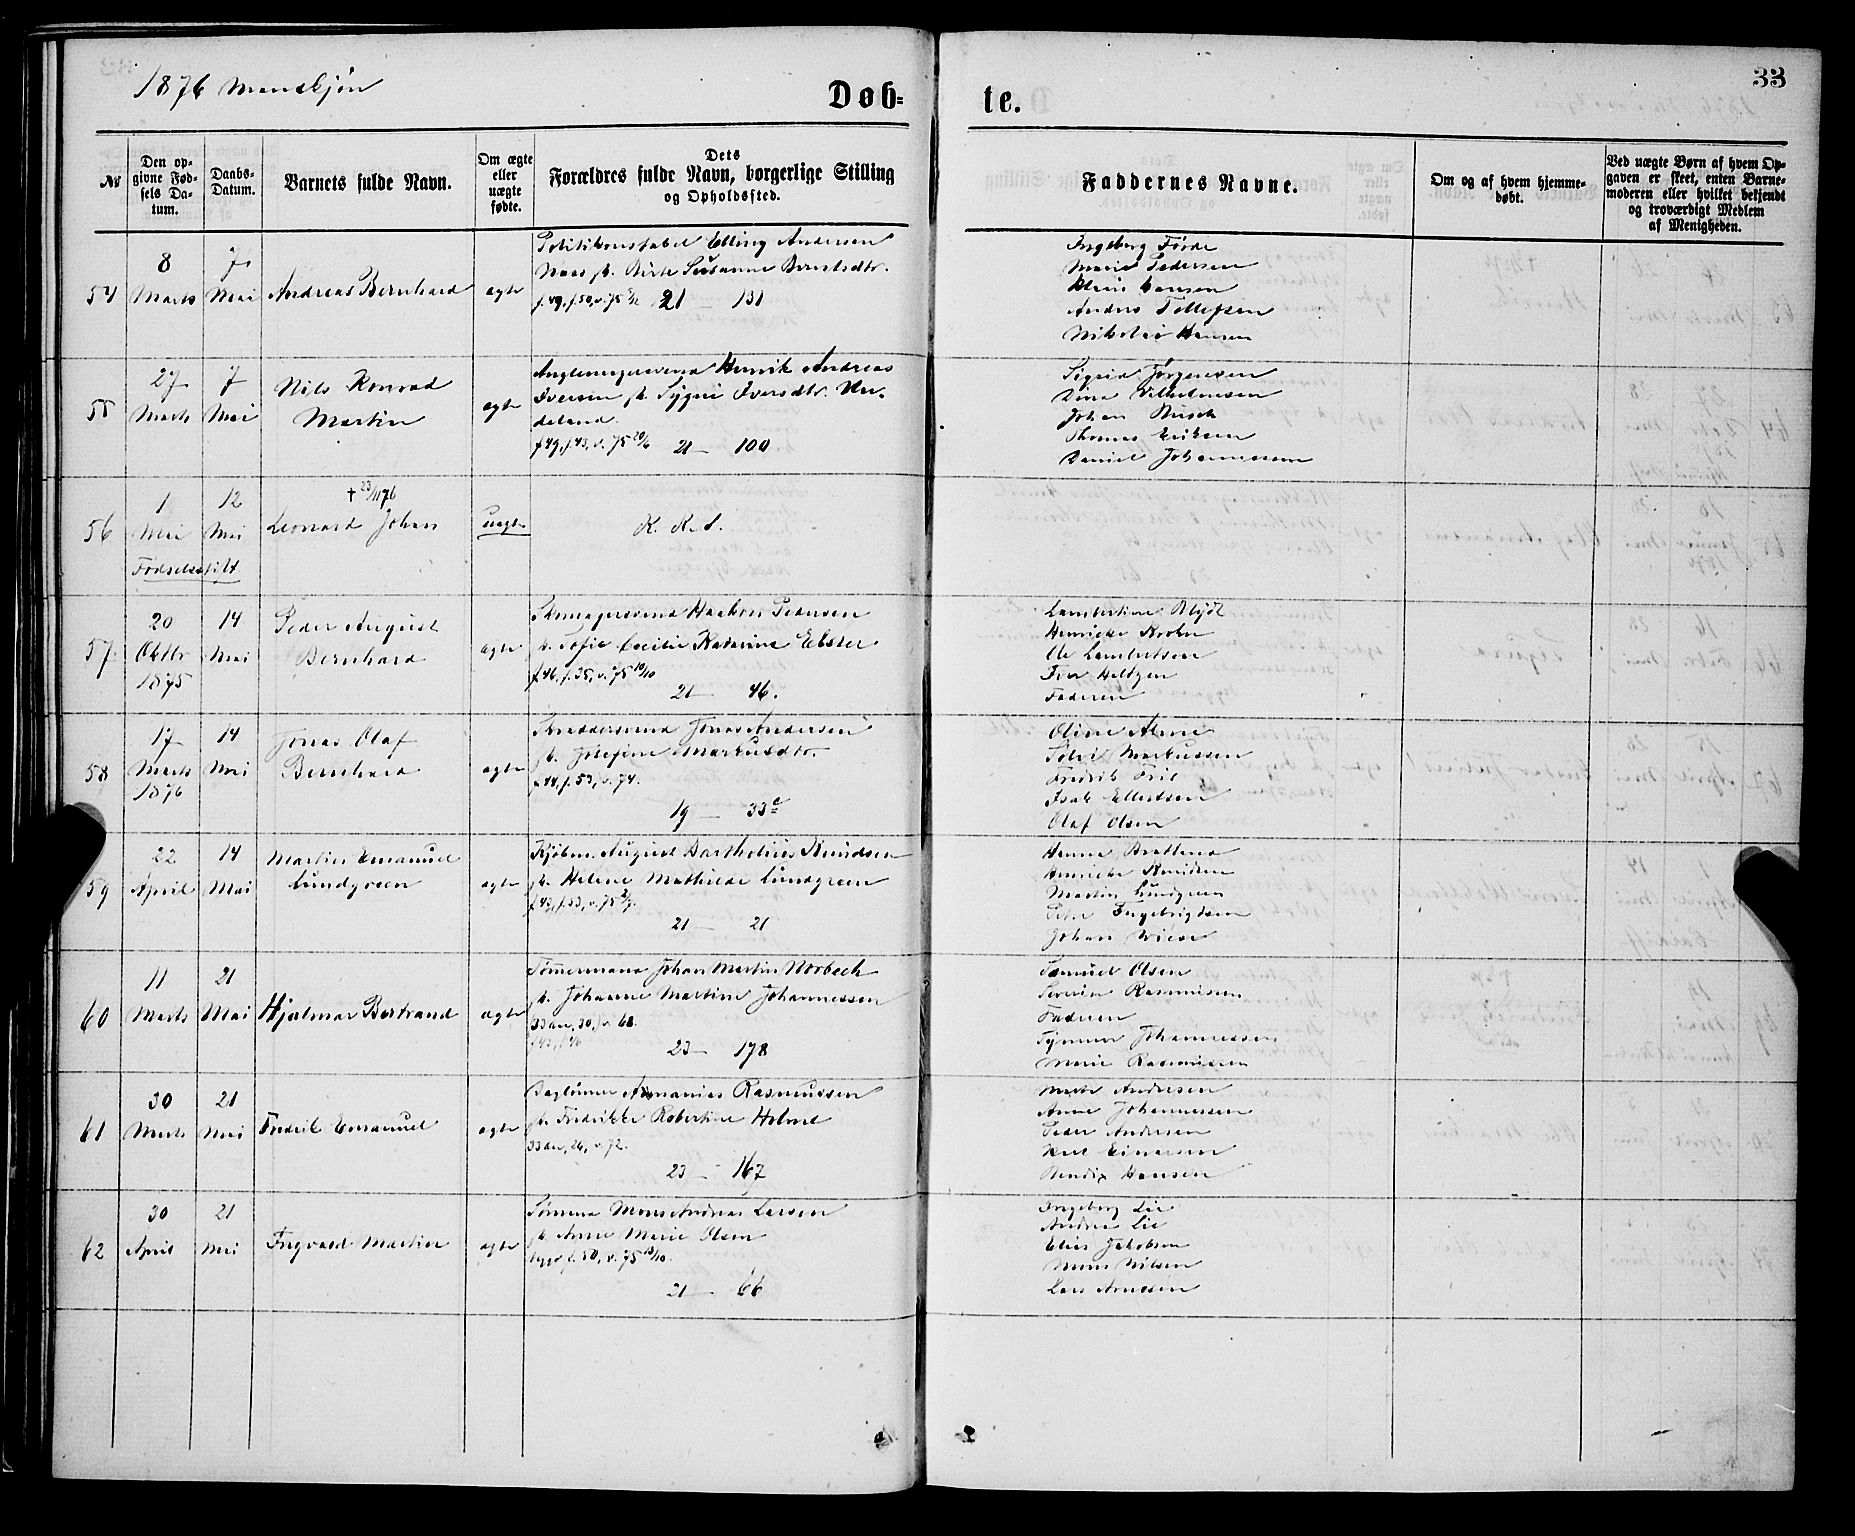 1876 Mandkjøn
33
Døb-
te.
№
Den op-
givne Fød-
sels Da-
tum.
Daabs-
Datum.
Barnets fulde Navn.
Om ægte
eller
uægte
fødte.
Dets
Forældres fulde Navn, borgerlige Stilling
og Opholdssted.
Faddernes Navne.
Om og af hvem hjemme-
døbt.
Ved uægte Børn af hvem Op-
gaven er skeet, enten Barne-
moderen eller hvilket bekjendt
og troværdigt Medlem
af Menigheden.
54
8
Marts
7
Mai
Andreas Bernhard
ægte
Politikonstabel Elling Andersen
Naas h. Birte Susanne Berntsdtr.
f. 49, f. 50, v. 75
21 — 131
Ingeborg Førde
Marie Pedersen
Hansen
Anders Tollefsen
Nikolai Hansen
55
27
Marts
7
Mai
Nils Konrad
Martin
ægte
Henrik Andreas
Iversen h. Sygni Iversdtr.
f. 49, f. 43, v. 75 20/6
21 — 100
Sigrid Jørgensen
Vilhelmsen
Johan Busch
Thomas Eriksen
Daniel Johannessen
56
1
Mai
Fødselsstift
12
Mai
† 23/11 76
Leonard Johan
uægte
K. K. S.
57
20
Oktbr
1875
14
Mai
Peder August
Bernhard
ægte
Skomagersvend Haakon Pedersen
h. Sofie Cecilie Katarina Ebster
f. 46, f. 35, v. 75 10/10
21 46.
Lambertine Blydt
Henrikke Krohn
Ole Lambertsen
Iver Heltzen
Faderen
58
17
Marts
1876
14
Mai
Jonas Olaf
Bernhard
ægte
Skreddersvend Jonas Andersen
h. Josefine Markusdtr.
f. 44, f. 53, v. 74.
19 — 33c
Oline Alme
Markussen
Fredrik Friis
Isak Ellertsen
Olaf Olsen
59
22
April
14
Mai
Martin Emanuel
Lundgreen
ægte
Kjøbm. August Bartholius Knudsen
h. Helene Mathilde Lundgreen
f. 43, f. 53, v. 75
21 — 21
Hanna
Henrikke Knudsen
Martin Lundgreen
Peter Ingebrigtsen
Johan Wiese
60
11
Marts
21
Mai
Hjalmar Bertrand
ægte
Tømmermand Johan Martin Norbech
h. Johanne Martine Johannessen
33 aar, 30, v. 68.
23 — 178
Samuel Olsen
Severin Rasmussen
Faderen
Johannessen
Marie Rasmussen
61
30
Marts
21
Mai
Fredrik Emanuel
ægte
Daglønner Ananias Rasmussen
h. Fredrikke Robertine Holme
33 aar, 26, v. 72.
23 — 167
Marte Andersen
Anne Johannessen
Peder Andersen
Einarsen
Bendix Hansen
62
30
April
21
Mai
Ingvald Martin
ægte
Sømand Mons Andreas Larsen
h. Anne Marie Olsen
f. 50, v. 75 13/10.
21 — 66
Ingeborg Lie
Andrea Lie
Elias Jakobsen
Mons Nilsen
Lars Arnesen